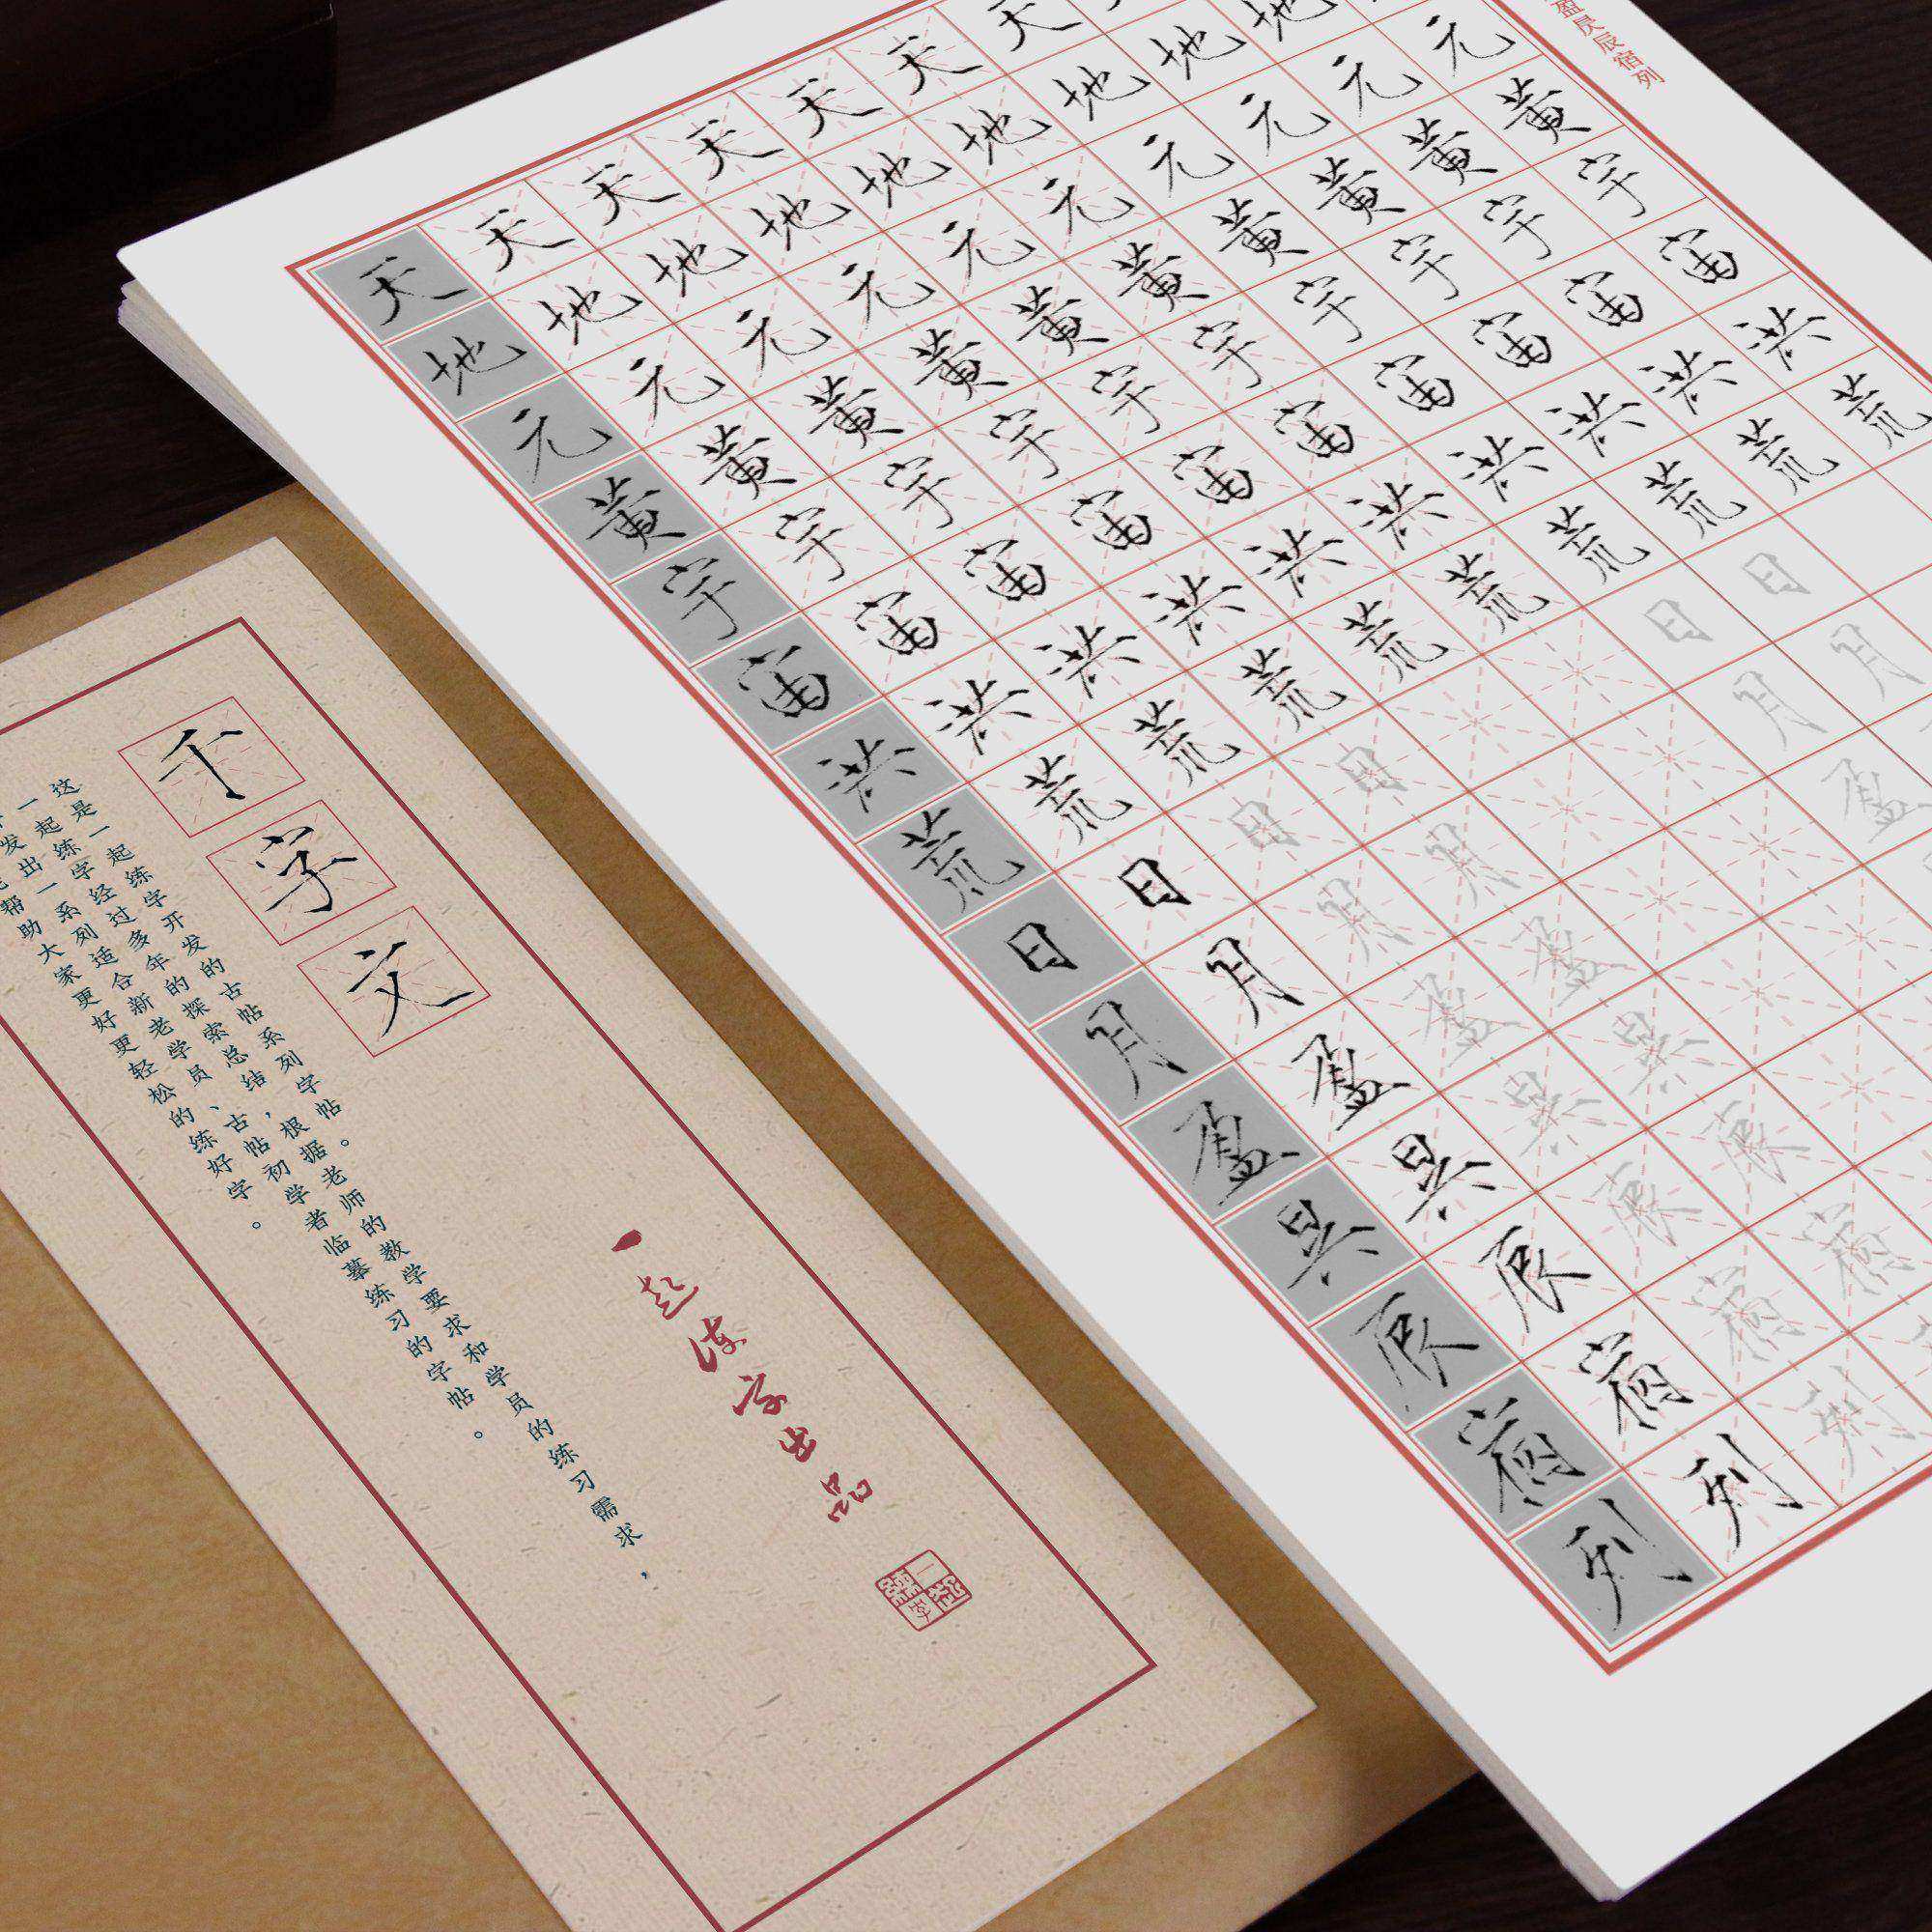 盈昃辰宿列
天天天天天天天
地地地地地地地地地
元元元元元元元元元元
黄黄黄黄黄黄黄黄黄黄
宇宇宇宇宇宇宇宇宇宇
宙宙宙宙宙宙宙宙宙宙
洪洪洪洪洪洪洪洪洪洪
荒荒荒荒荒荒荒荒荒荒
日日日日日日
月月月月月月
盈盈盈盈盈
昃昃昃昃
辰辰辰辰
宿宿宿宿
列列列
千字文
这是一起练字开发的古帖系列字帖。
一起练字经过多年的探索总结，根据老师的教学要求和学员的练习需求，
发出一系列适合新老学员、古帖初学者临摹练习的字帖。
帮助大家更好更轻松的练好字。
一起练字出品
一起练字